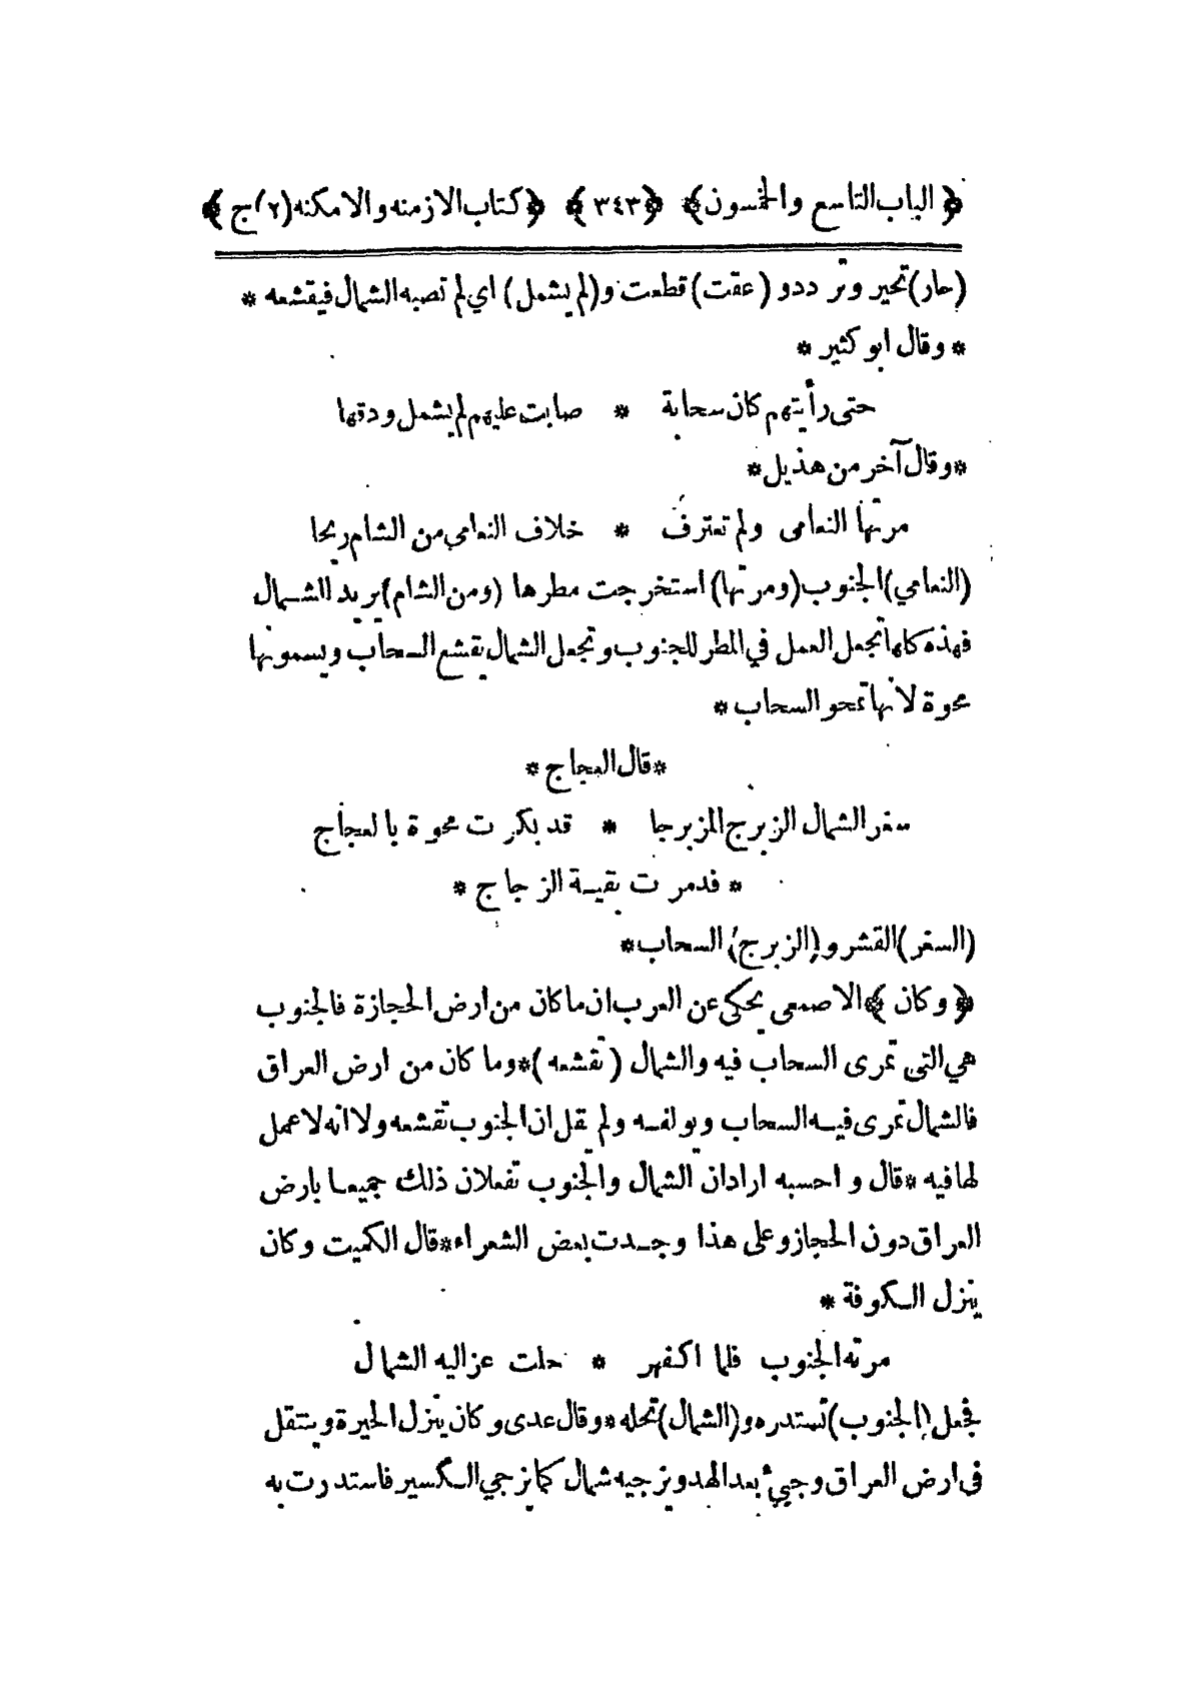 ﴿ الباب التاسع والخمسون ﴾ ﴿ ٣٤٣ ﴾ ﴿ كتاب الازمنه والامكنه (٢) ج ﴾
(حار) تحير وتر ددو (عقت) قطعت و(لم يشمل) اي لم تصبه الشمال فيقشعه *
* وقال ابو كثير *
حتى رأيتهم كان سحابة * صابت عليهم لم يشمل ودقها
* وقال آخر من هذيل *
مرتها النعامى ولم تعترف * خلاف النعامي من الشام ريحا
(النعامي) الجنوب (ومرتها) استخرجت مطرها (ومن الشام) يريد الشمال
فهذه كلها تجعل العمل في المطر للجنوب وتجعل الشمال يقشع السحاب ويسمونها
محوة لانها تمحو السحاب *
* قال العجاج *
سفر الشمال الزبرج المزبرجا * قد بكرت محوة بالعجاج
* فدمرت بقية الزجاج *
(السفر) القشر و(الزبرج) السحاب *
﴿ وكان ﴾ الاصمعي يحكى عن العرب ان ما كان من ارض الحجازة فالجنوب
هي التى تمرى السحاب فيه والشمال (تقشعه) * وما كان من ارض العراق
فالشمال تمرى فيه السحاب ويولفه ولم يقل ان الجنوب تقشعه ولا انه لا عمل
لها فيه * قال و احسبه اراد ان الشمال والجنوب تفعلان ذلك جميعا بارض
العراق دون الحجاز وعلى هذا وجدت بعض الشعراء * قال الكميت وكان
ينزل الكوفة *
مرته الجنوب فلما اكفهر * حلت عزاليه الشمال
فجعل (الجنوب) تستدره و(الشمال) تحله * وقال عدى وكان ينزل الحيرة وينتقل
فى ارض العراق وجيئ بعد الهدو نزجيه شمال كما يزجي الكسير فاستدرت به